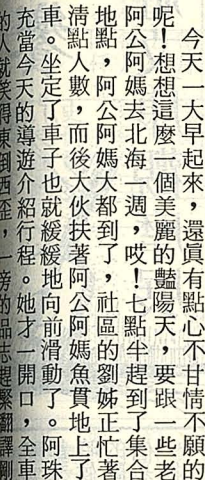 今天一大早起來，還眞有點心不甘情不願的
呢！想想這麼一個美麗的豔陽天，要跟一些老
阿公阿媽去北海一週，哎！七點半趕到了集合
地點，阿公阿媽大都到了，社區的劉姊正忙著
清點人數，而後大伙扶著阿公阿媽魚貫地上了
車。坐定了車子也就緩緩地向前滑動了。阿珠
充當今天的導遊介紹行程。她才一開口，全車
的人就笑得東到西歪，一旁的呂志趕緊翻譯剛